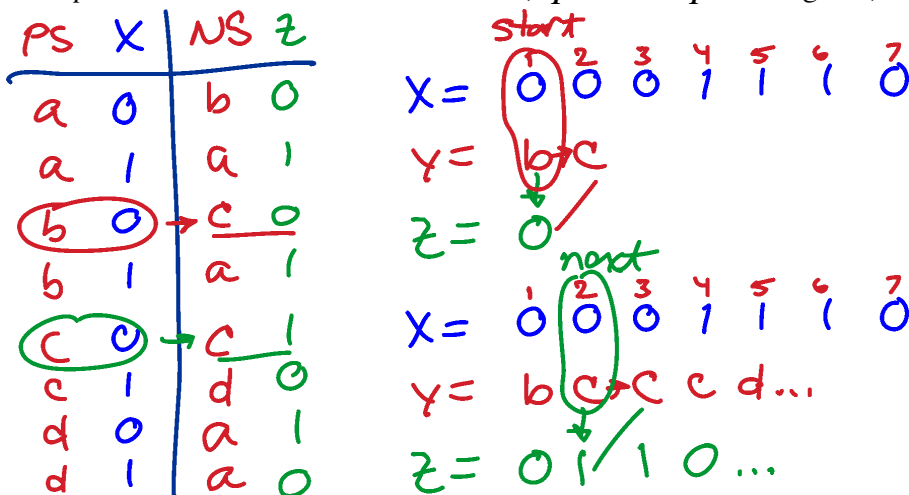 PS X NS Z
a 0 b 0
a 1 a 1
b 0 → c 0
b 1 a 1
c 0 → c 1
c 1 d 0
d 0 a 1
d 1 a 0
start
1 2 3 4 5 6 7
X = 0 0 0 1 1 1 0
Y = b → c
Z = 0
next
1 2 3 4 5 6 7
X = 0 0 0 1 1 1 0
Y = b c → c c d...
Z = 0 1 1 0 ...